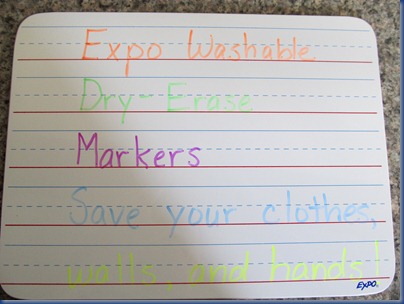 Expo Washable
Dry-Erase
Markers
Save your clothes,
walls, and hands!
EXPO